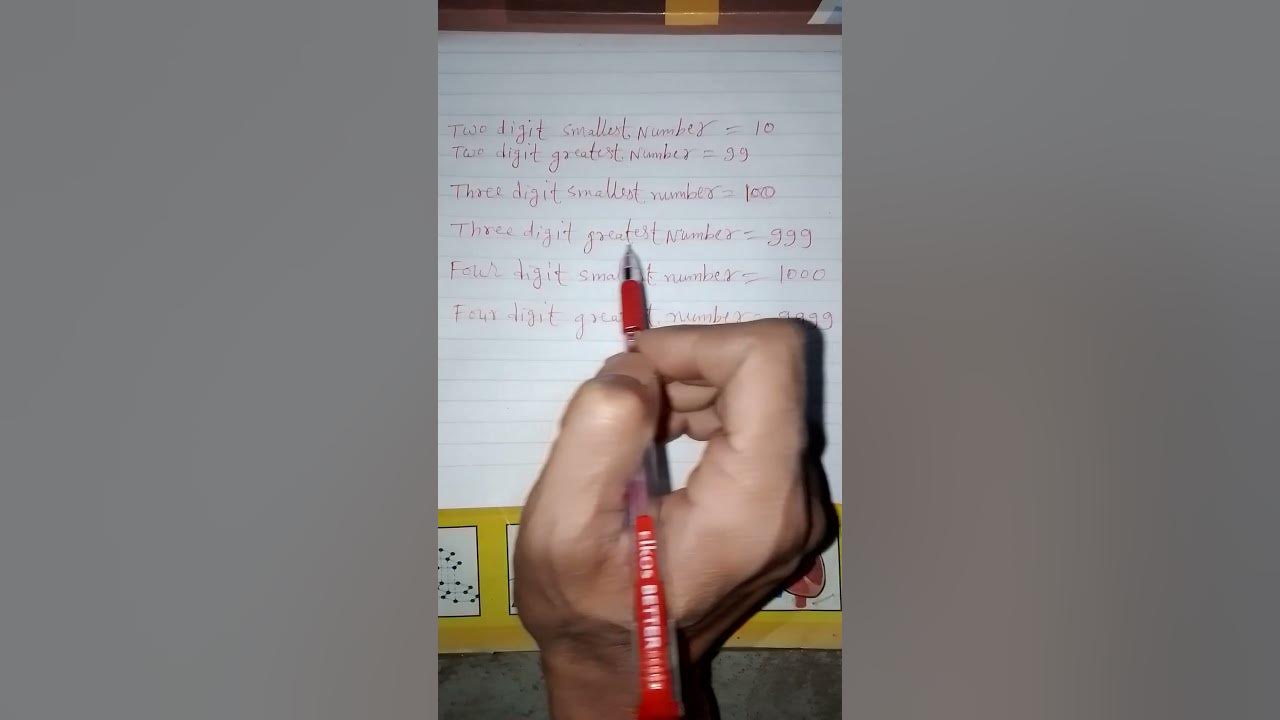 Two digit smallest Number = 10
Two digit greatest Number = 99
Three digit smallest number = 100
Three digit greatest Number = 999
Four digit number = 1000
Four digit number = 9999
elkos BETTER